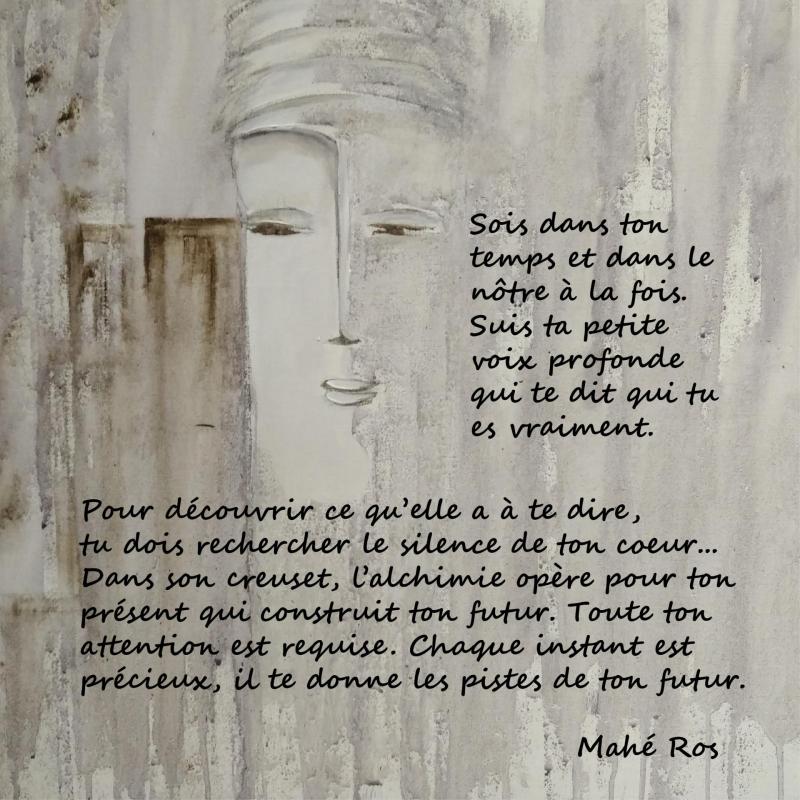 Sois dans ton
temps et dans le
nôtre à la fois.
Suis ta petite
voix profonde
qui te dit qui tu
es vraiment.
Pour découvrir ce qu'elle a à te dire,
tu dois rechercher le silence de ton coeur...
Dans son creuset, l'alchimie opère pour ton
présent qui construit ton futur. Toute ton
attention est requise. Chaque instant est
précieux, il te donne les pistes de ton futur.
Mahé Ros